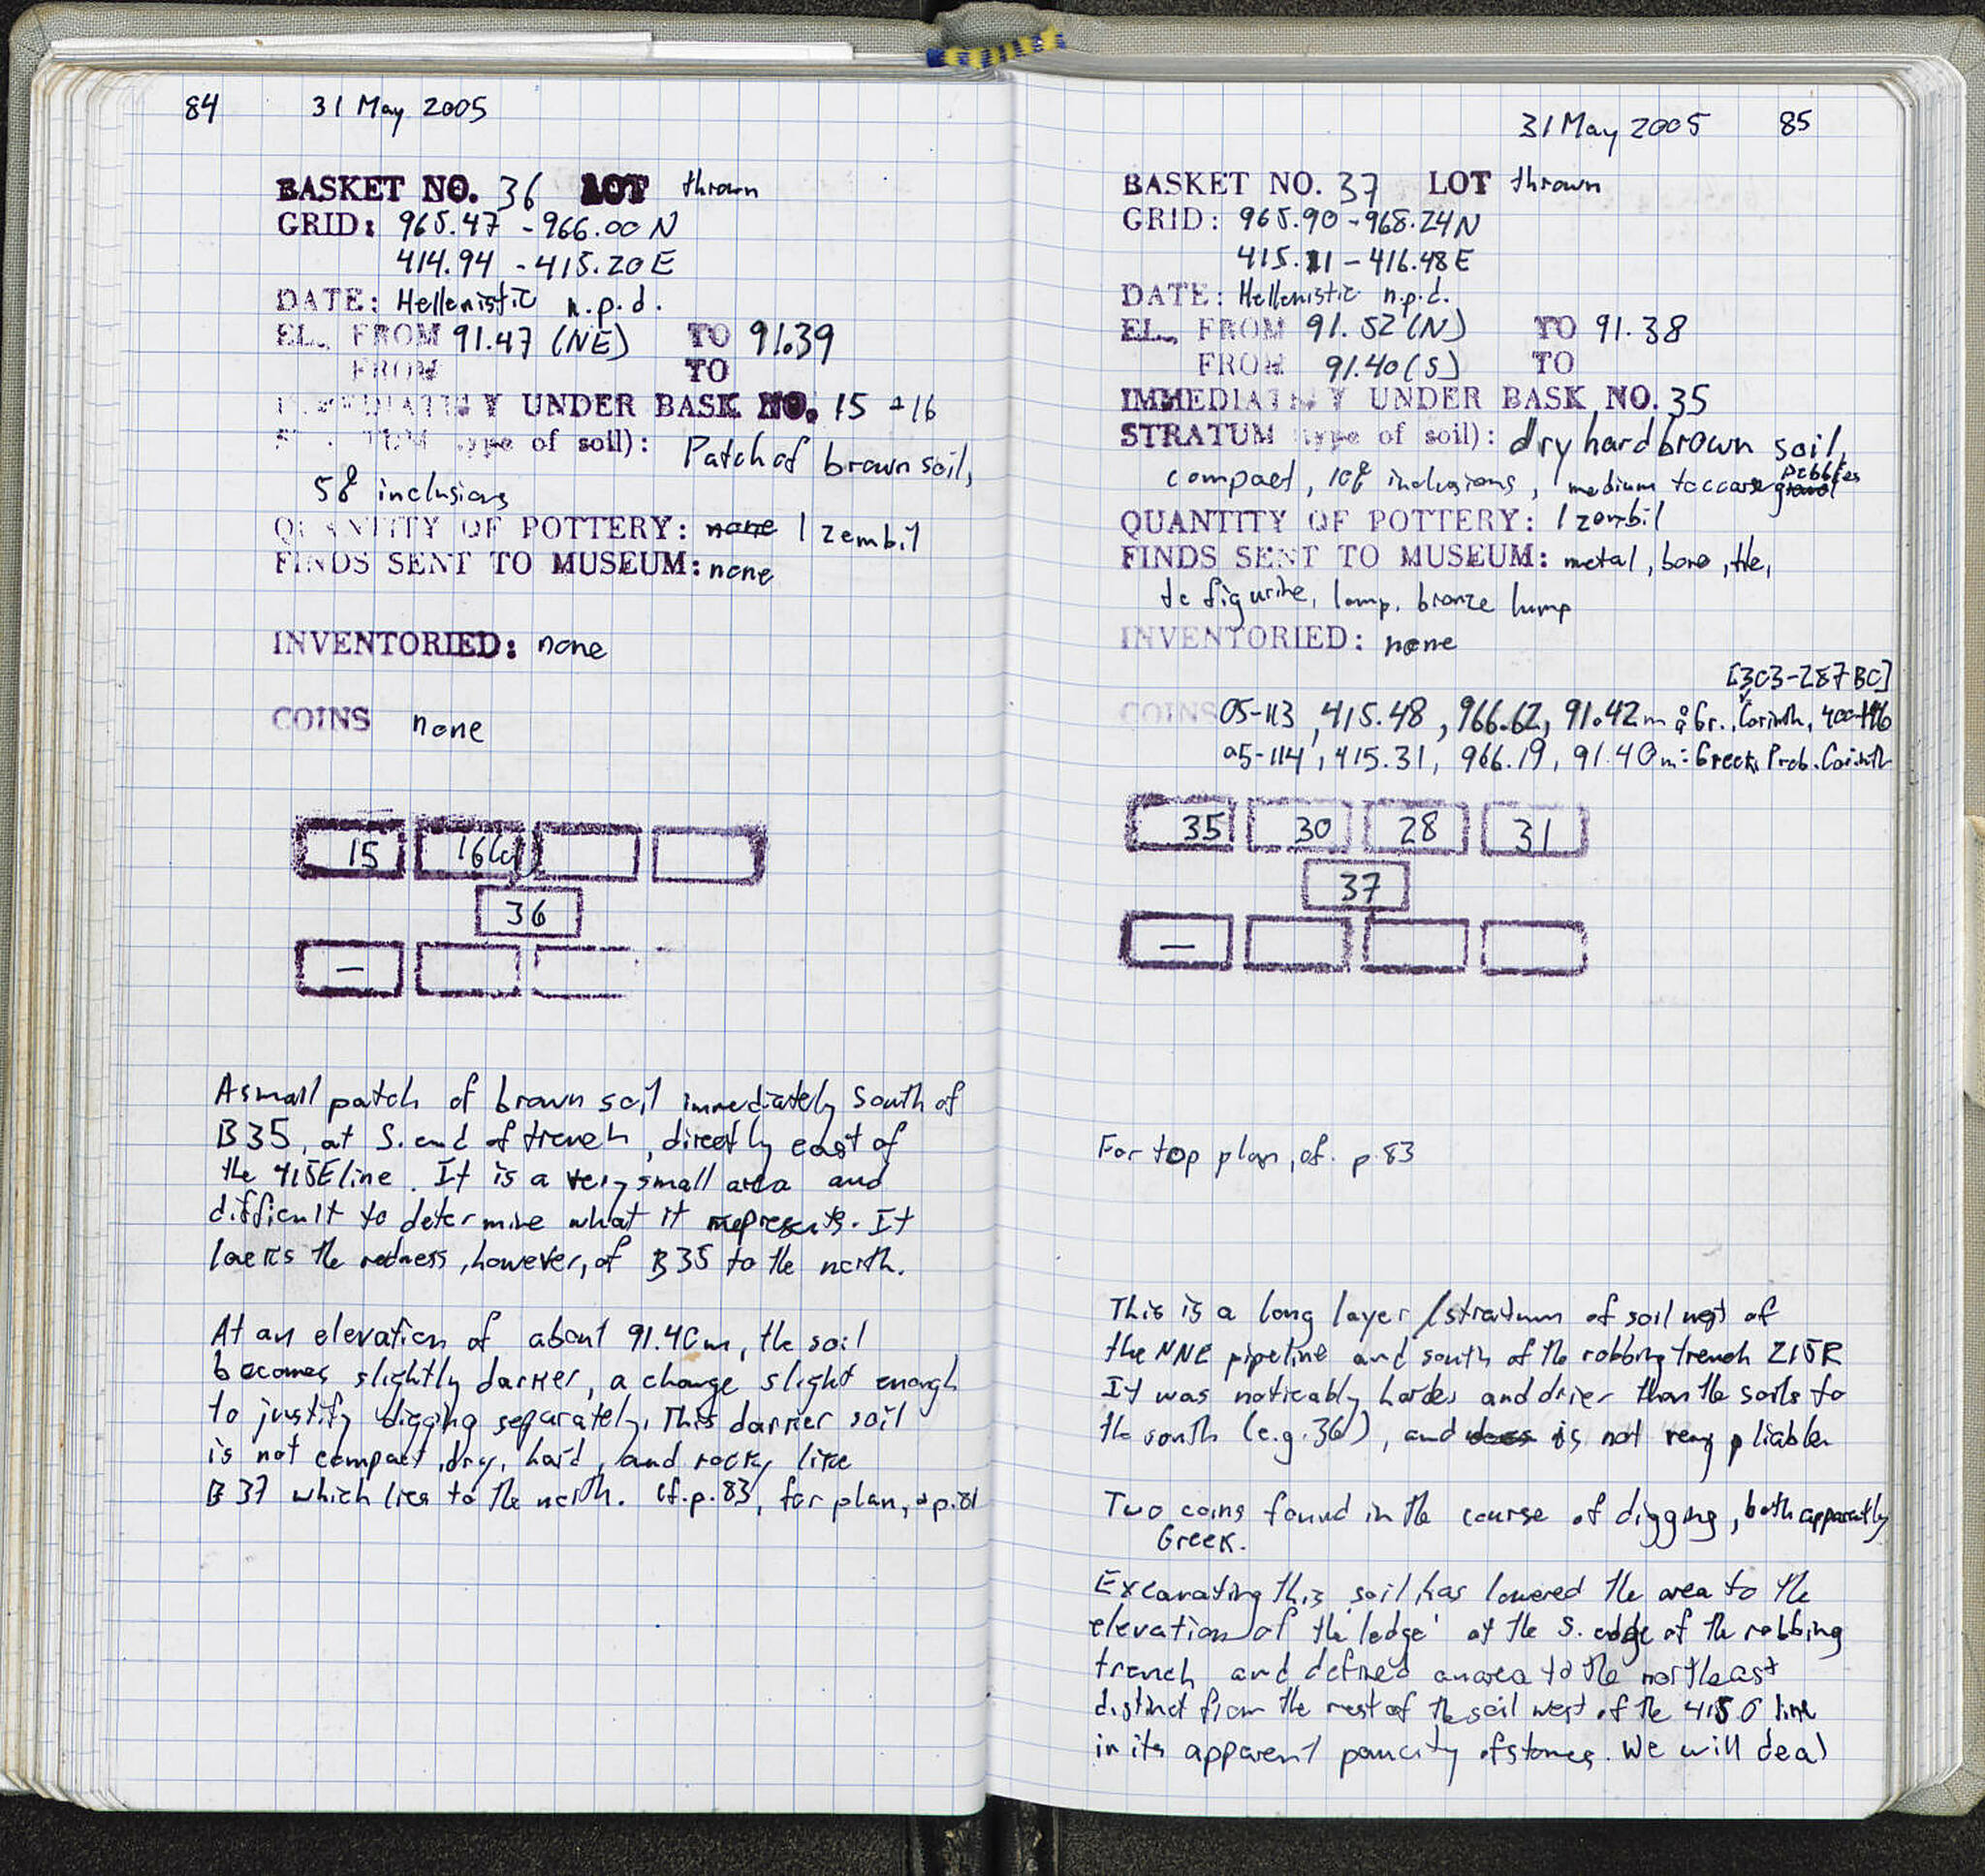 84 31 May 2005
BASKET NO. 36 LOT thrown
GRID: 965.47 - 966.00 N
414.94 - 415.20 E
DATE: Hellenistic n.p.d.
EL., FROM 91.47 (NE) TO 91.39
FROM TO
IMMEDIATELY UNDER BASK NO. 15 + 16
STRATUM (type of soil): Patch of brown soil,
5% inclusions
QUANTITY OF POTTERY: none 1 zembil
FINDS SENT TO MUSEUM: none
INVENTORIED: none
COINS none
15 16
36
—
A small patch of brown soil immediately South of
B35, at S. end of trench, directly east of
the 415E line. It is a very small area and
difficult to determine what it represents. It
lacks the redness, however, of B35 to the north.
At an elevation of about 91.40m, the soil
becomes slightly darker, a change slight enough
to justify digging separately. This darker soil
is not compact, dry, hard, and rocky like
B37 which lies to the north. Cf. p. 83, for plan, + p. 81
31 May 2005 85
BASKET NO. 37 LOT thrown
GRID: 965.90 - 968.24 N
415.11 - 416.48 E
DATE: Hellenistic n.p.d.
EL., FROM 91.52 (N) TO 91.38
FROM 91.40 (S) TO
IMMEDIATELY UNDER BASK NO. 35
STRATUM (type of soil): dry hard brown soil,
compact, 10% inclusions, medium to coarse gravel pebbles
QUANTITY OF POTTERY: 1 zembil
FINDS SENT TO MUSEUM: metal, bone, tile,
tc figurine, lamp, bronze lump
INVENTORIED: none
[303-287 BC]
COINS 05-113, 415.48, 966.62, 91.42m: Gr., Corinth, 400-146
05-114, 415.31, 966.19, 91.40m: Greek, Prob. Corinth
35 30 28 31
37
—
For top plan, cf. p. 83
This is a long layer / stratum of soil west of
the NNE pipeline and south of the robbing trench 215R
It was noticably harder and drier than the soils to
the south (e.g. 36), and does is not very pliable
Two coins found in the course of digging, both apparently
Greek.
Excavating this soil has lowered the area to the
elevation of the 'ledge' at the S. edge of the robbing
trench and defined an area to the northeast
distinct from the rest of the soil west of the 415.0 line
in its apparent paucity of stones. We will deal